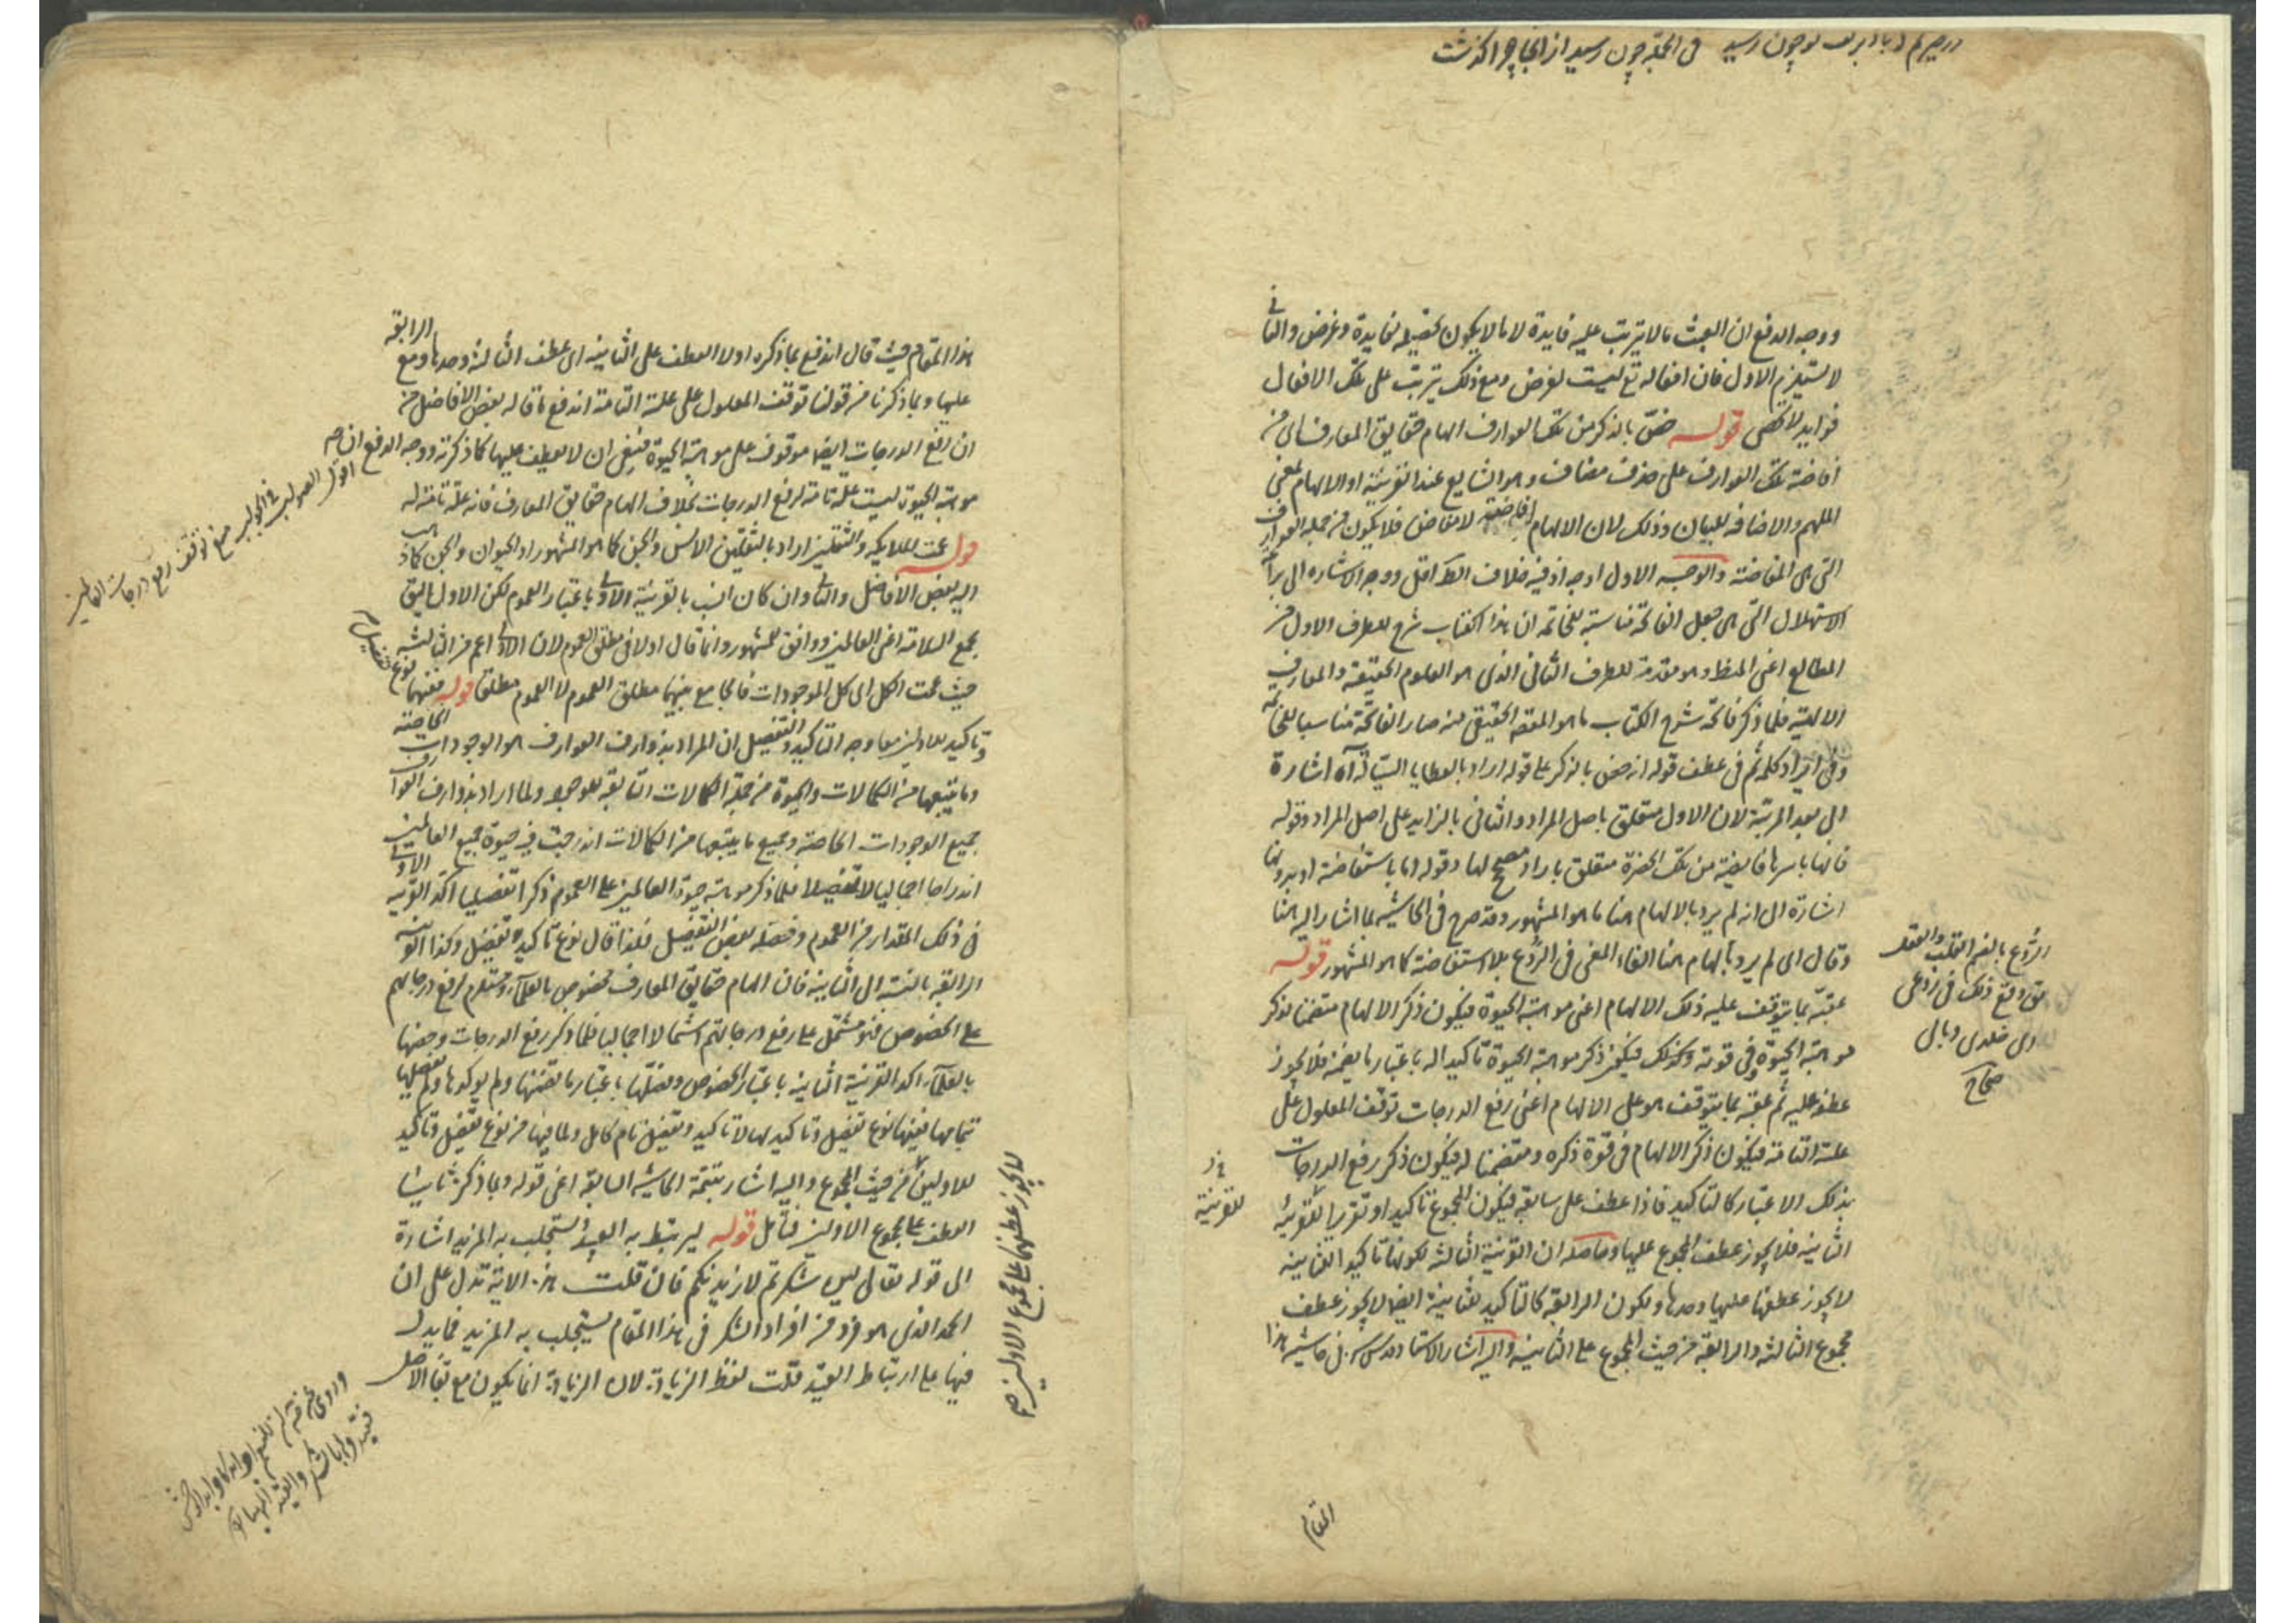 ووجه الدفع ان العبث ما لا يترتب عليه فايدة لا ما لا يكون تحصيله لفايدة وغرض والثاني
لا يستلزم الاول فان افعاله تع ليست لغرض ومع ذلك يترتب على تلك الافعال
فوايد لا تحصى قوله خص بالذكر من تلك العوارف الهام حقايق المعارف اى من
افاضة تلك العوارف على حذف مضاف وهو الشايع عند القرينة او الالهام بمعنى
الملهم والاضافه للبيان وذلك لان الالهام افاضة لا مفاض فلا يكون من جملة العوارف
التى هى المفاضة والوجه الاول اوجه اذ فيه خلاف الظ اقل ووجه الاشاره الى براعة
الاستهلال التى هى جعل الفاتحة مناسبة للخاتمه ان هذا الكتاب شرح للطرف الاول من
المطالع اعنى المنطق وهو مقدمة للطرف الثانى الذى هو العلوم الحقيقة والمعارف
الالهية فلما ذكر فاتحة شرح الكتاب ما هو المقصد الحقيقى منه صار الفاتحة مناسبا للخاتمه
وفى ايراد كلمة ثم فى عطف قوله ثم خص بالذكر على قوله اراد بالعطايا السابقة اه اشارة
الى بعد المرتبة لان الاول متعلق باصل المراد والثانى بالزايد على اصل المراد وقوله
فانها باسرها فايضة من تلك الحضرة متعلق باراد مصحح لها وقوله اما باستفاضة او بدونها
اشارة الى انه لم يرد بالالهام هنا ما هو المشهور وقد صرح فى الحاشيه بما اشار اليه هنا
وقال اى لم يرد بالهام هنا القاء المعنى فى الروع بلا استفاضة كما هو المشهور قوله
عقبه بما يتوقف عليه ذلك الالهام اعنى موهبة الحيوة فيكون ذكر الالهام متضمنا لذكر
موهبة الحيوة وفى قوته وكذلك فيكون ذكر موهبة الحيوة تأكيدا له باعتبار ما يضمنه فلا يجوز
عطفه عليه ثم عقبه بما يتوقف هو على الالهام اعنى رفع الدرجات توقف المعلول على
علته التامة فيكون ذكر الالهام فى قوة ذكره ومتضمنا له فيكون ذكر رفع الدرجات
بذلك الاعتبار كالتاكيد فاذا عطف على سابقه فيكون المجموع تاكيدا وتقريرا للقرينة
الثانيه فلا يجوز عطف المجموع عليها وحاصله ان القرينة الثالثه لكونها تاكيد الثانية
لا يجوز عطفها عليها وحدها ولكون الرابعة كالتاكيد للثانية ايضا لا يجوز عطف
مجموع الثالثه والرابعة من حيث المجموع على الثانيه واليه اشار الاستاد قدس سره فى حاشية هذا
الروع بالضم القلب والعقل
يق وقع ذلك فى روعى
اى خلدى وبالى
صحاح
للقرينة
المقام
هذا المقام حيث قال اندفع بما ذكره اولا العطف على الثانيه اى عطف الثالثه وحدها ومع الرابعة
عليها وبما ذكرنا من قولنا توقف المعلول على علته التامة اندفع ما قاله بعض الافاضل من
ان رفع الدرجات ايضا موقوف على موهبة الحيوة فينبغى ان لا يعطف عليها كما ذكرته ووجه الدفع ان
موهبة الحيوة ليست علة تامة لرفع الدرجات بخلاف الهام حقايق المعارف فانه علة تامة له
قوله عمت للملايكه والثقلين اراد بالثقلين الانس والجن كما هو المشهور او الحيوان والجن كما ذهب
اليه بعض الافاضل والثانى وان كان انسب بالقرينة الاولى باعتبار العموم لكن الاول اليق
بجمع السلامة اعنى العالمين ووافق للمشهور وانما قال اولا فى مطلق العموم لان الاولى اعم من الثالثه
حيث عمت الكل اى كل الموجودات فالجامع بينهما مطلق العموم لا العموم مطلقا قوله ففيهما نوع تفصيل
وتاكيد للاوليين معا وجه التاكيد والتفصيل ان المراد بذوارف العوارف هو الوجودات الخاصة
وما يتبعها من الكمالات والحيوة من جملة الكمالات التابعة للوجود ولما اراد بذوارف العوارف
جميع الوجودات الخاصة وجميع ما يتبعها من الكمالات اندرجت فيه حيوة جميع العالمين
اندراجا اجماليا لا تفصيلا فلما ذكر موهبة حيوة العالمين على العموم ذكرا تفصيليا اكد القرينة الاولى
فى ذلك المقدار من العموم وفصله بعض التفصيل فلذا قال نوع تاكيد وتفصيل وكذا القرينة
الرابعة بالنسبة الى الثانية فان الهام حقايق المعارف مخصوص بالعلماء ومستلزم لرفع درجاتهم
على الخصوص فهو مشتمل على رفع درجاتهم اشتمالا اجماليا فلما ذكر رفع الدرجات وخصها
بالعلماء اكد القرينة الثانيه باعتبار الخصوص وفصلها باعتبار ما تضمنها ولم يؤكدها ولم يفصلها
بتمامها ففيها نوع تفصيل وتاكيد لها لا تاكيد وتفصيل تام كامل ولما فيها من نوع تفصيل وتاكيد
للاوليين من حيث المجموع واليه اشار بتتمة الحاشيه السابقه اعنى قوله وبما ذكر ثانيا
العطف على مجموع الاوليين فتأمل قوله ليرتبط به العتيد ويستجلب به المزيد اشارة
الى قوله تعالى لئن شكرتم لازيدنكم فان قلت هذه الاية تدل على ان
الحمد الذى هو فرد من افراد الشكر فى هذا المقام يستجلب به المزيد فما يدل
فيها على ارتباط العتيد قلت لفظ الزيادة لان الزيادة انما يكون مع بقاء الاصل
لا يجوز عطفهما على مجموع الاوليين